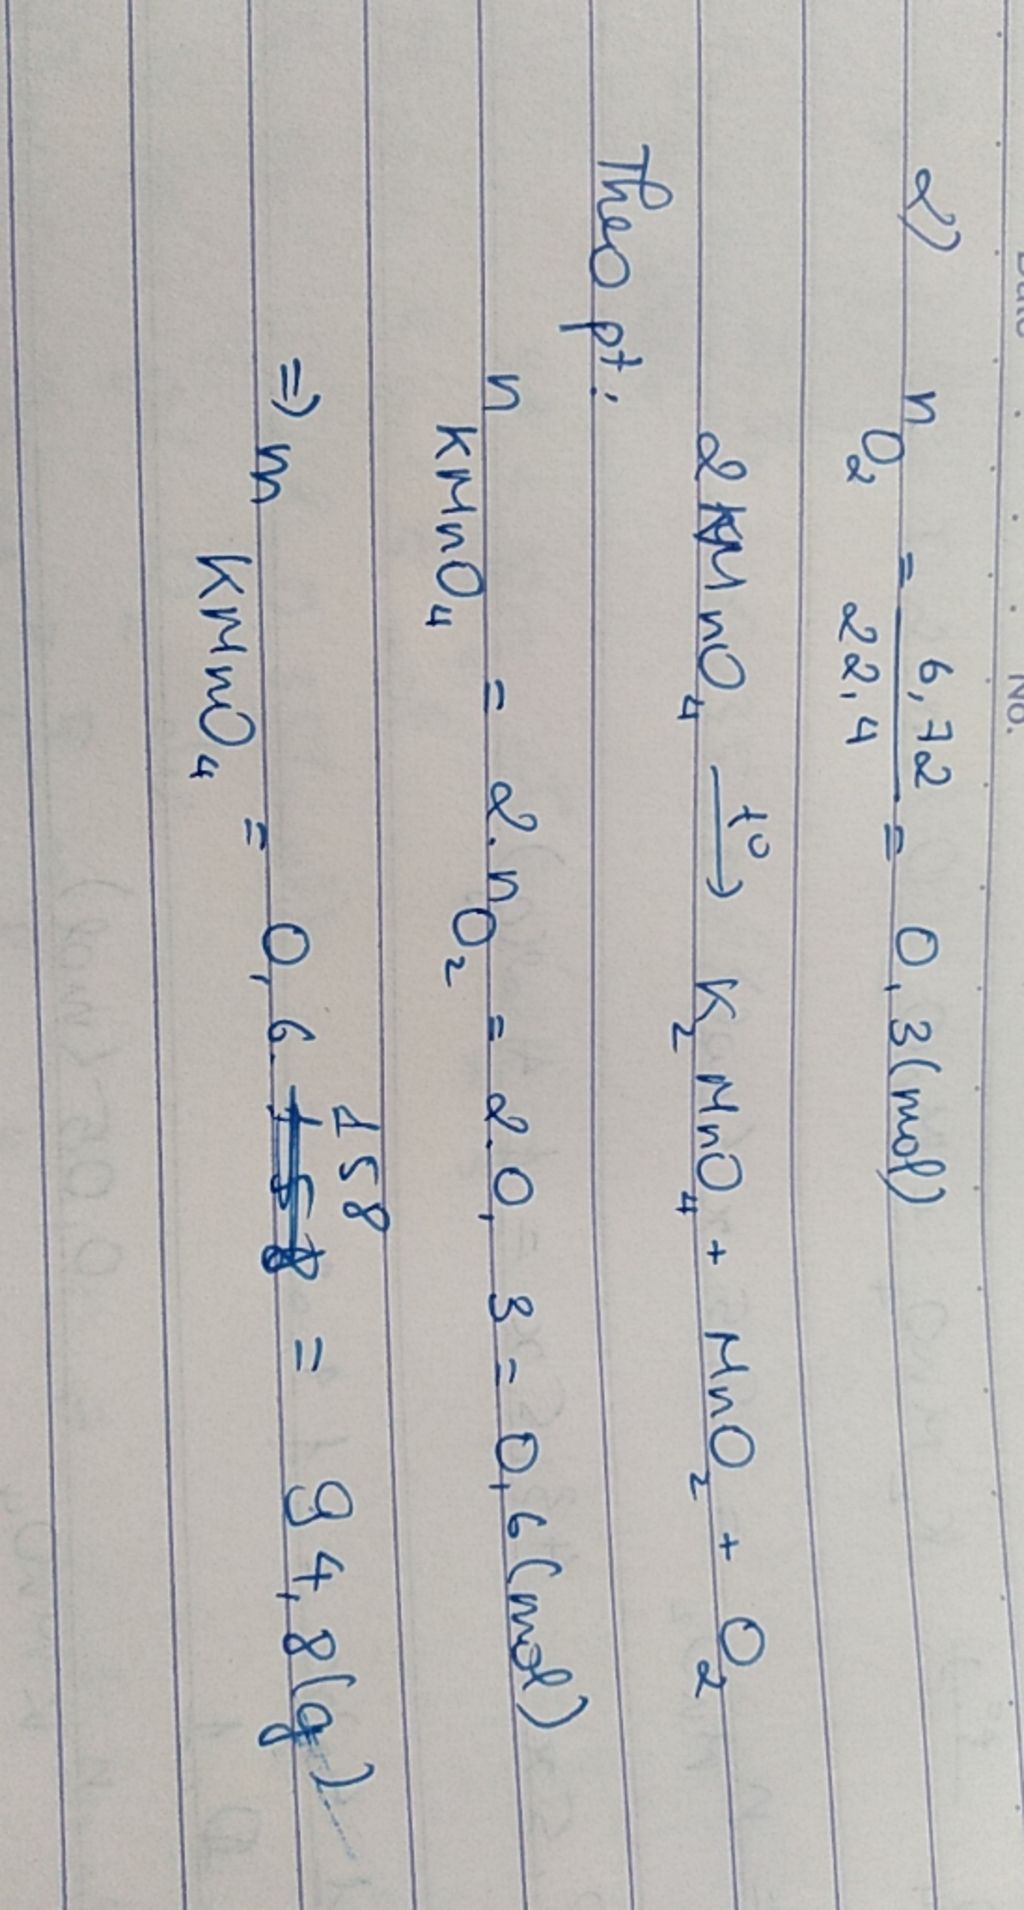 Date No.
2) n O₂ = 6,72 / 22,4 = 0,3 (mol)
2KMnO₄ t⁰→ K₂MnO₄ + MnO₂ + O₂
Theo pt:
n KMnO₄ = 2.n O₂ = 2.0,3 = 0,6 (mol)
=) m KMnO₄ = 0,6. 158 = 94,8 (g)